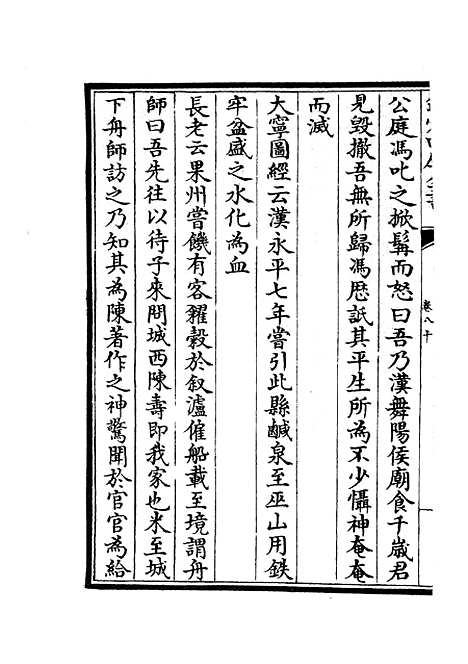 卷八十
公庭馮叱之掀髯而怒曰吾乃漢舞陽侯廟食千歲君
見毀撤吾無所歸馮歴詆其平生所為不少懾神奄奄
而滅
大寧圖經云漢永平七年嘗引此縣鹹泉至巫山用鉄
牢盆盛之水化為血
長老云果州嘗饑有客糴穀於叙瀘催船載至境謂舟
師曰吾先往以待子來問城西陳壽即我家也米至城
下舟師訪之乃知其為陳著作之神驚聞於官官為給